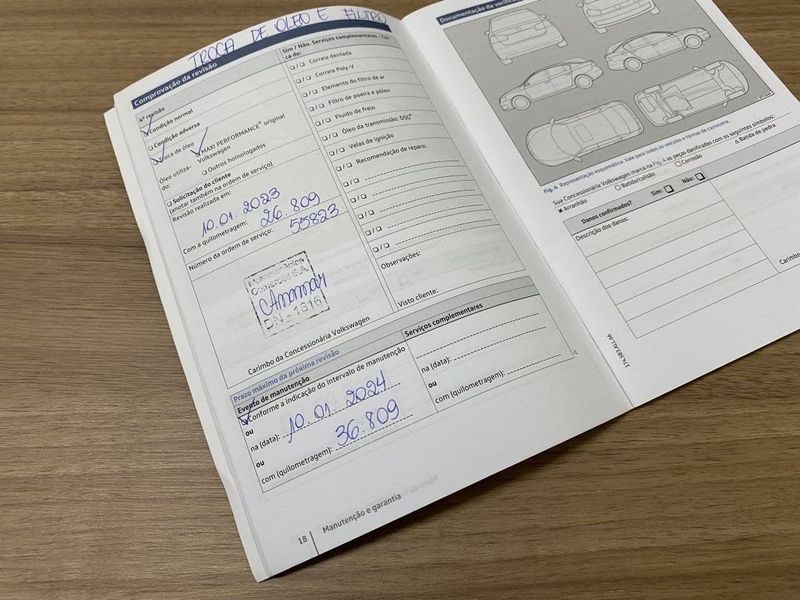 TROCA DE ÓLEO E FILTRO
Comprovação da revisão
Sim / Não. Serviços complementares -
ca de:
nº revisão
Condição normal
Condição adversa
oca de óleo
Óleo utiliza-
do:
MAXI PERFORMANCE® original
Volkswagen
Outros homologados
Solicitação do cliente
(anotar também na ordem de serviço)
Revisão realizada em:
10.01.2023
Com a quilometragem: 26.809
Número da ordem de serviço: 55823
Comercial S.A.
DN - 1316
Carimbo da Concessionária Volkswagen
/ Correia dentada
/ Correia Poly-V
/ Elemento do filtro de ar
/ Filtro de poeira e pólen
/ Fluido de freio
/ Óleo da transmissão: DSG®
/ Velas de ignição
/ Recomendação de reparo:
Observações:
Visto cliente:
Prazo máximo da próxima revisão
Evento de manutenção
Conforme a indicação do intervalo de manutenção
ou
na (data): 10 01 2024
ou
com (quilometragem): 36.809
Serviços complementares
na (data):
ou
com (quilometragem):
18 Manutenção e garantia
Documentação da
Fig. 4 Representação esquemática. Vale para todos os veículos e formas de carroceria.
Sua Concessionária Volkswagen marca na Fig. 4 as peças danificadas com os seguintes símbolos:
× Arranhão
Batida/colisão
Corrosão
Batida de pedra
Danos confirmados? Sim: Não:
Descrição dos danos: